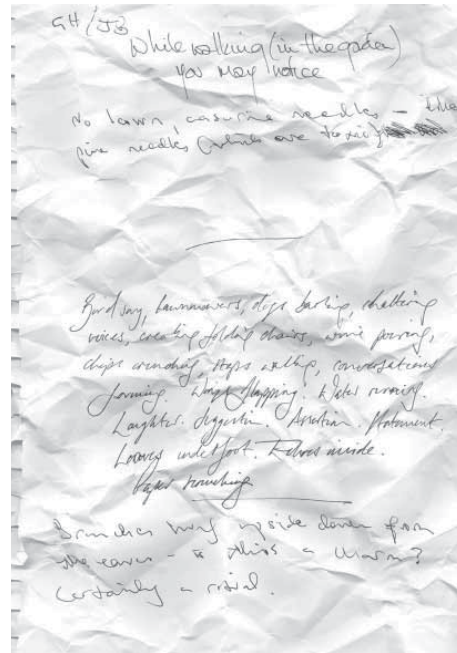 GH / JB
While walking (in the garden)
you may notice
No lawn, casurine needles - like
pine needles (which are toxic)
Bird song, lawnmowers, dogs barking, chattering
voices, creaking folding chairs, wine pouring,
chips crunching, steps walking, conversations
forming. Wings flapping. Water running.
Laughter. digestion. Aeration. Statement.
Leaves underfoot. inside.
Paper
Branches hung upside down from
the eaves - is this a charm?
Certainly a ritual.